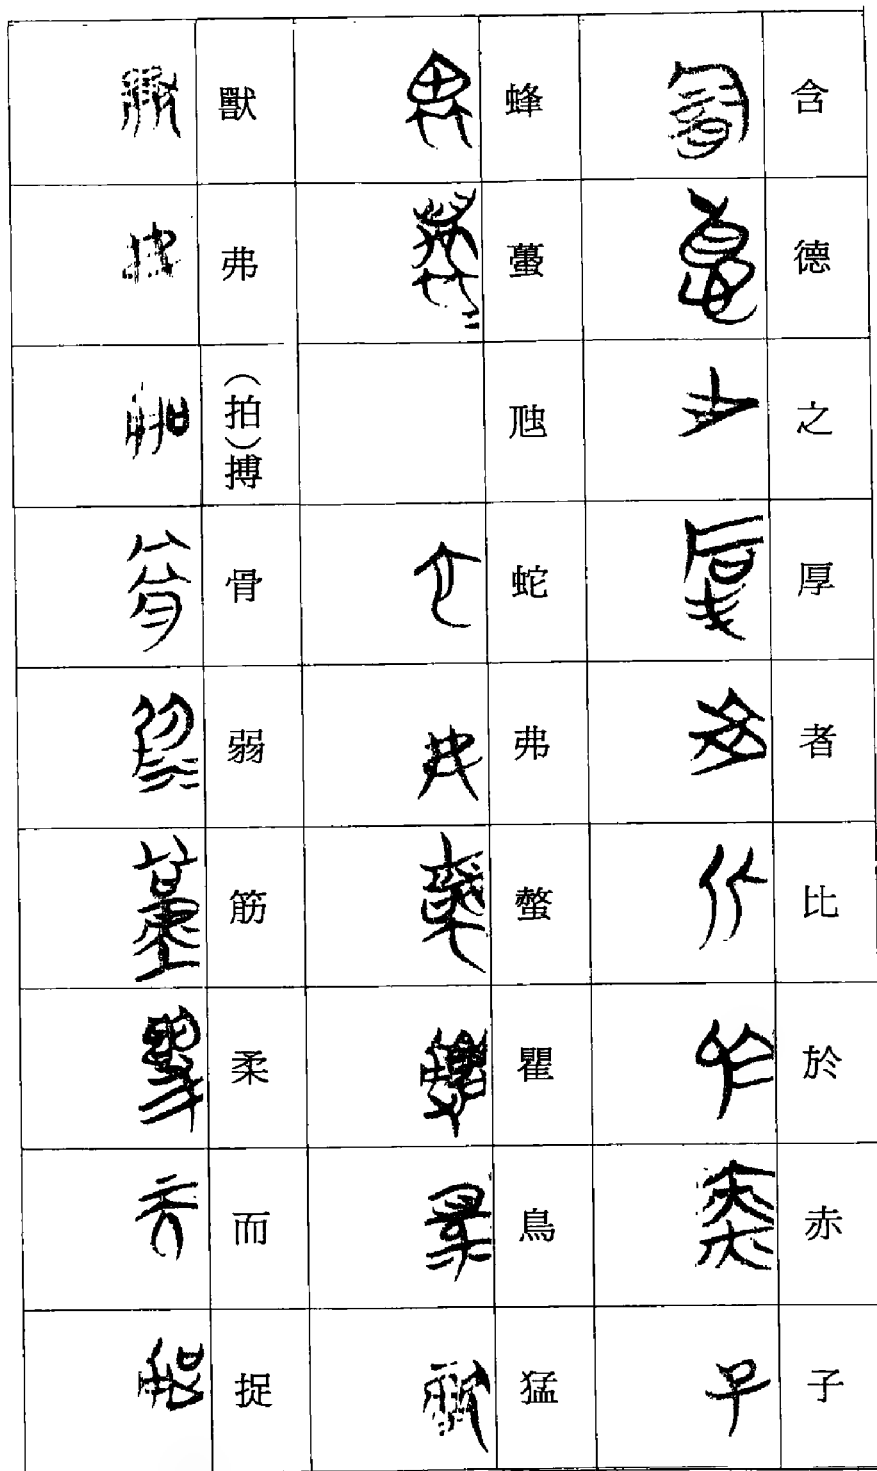 含德之厚者比於赤子
蜂蠆虺蛇弗螫瞿鳥猛
獸弗（拍）搏骨弱筋柔而捉